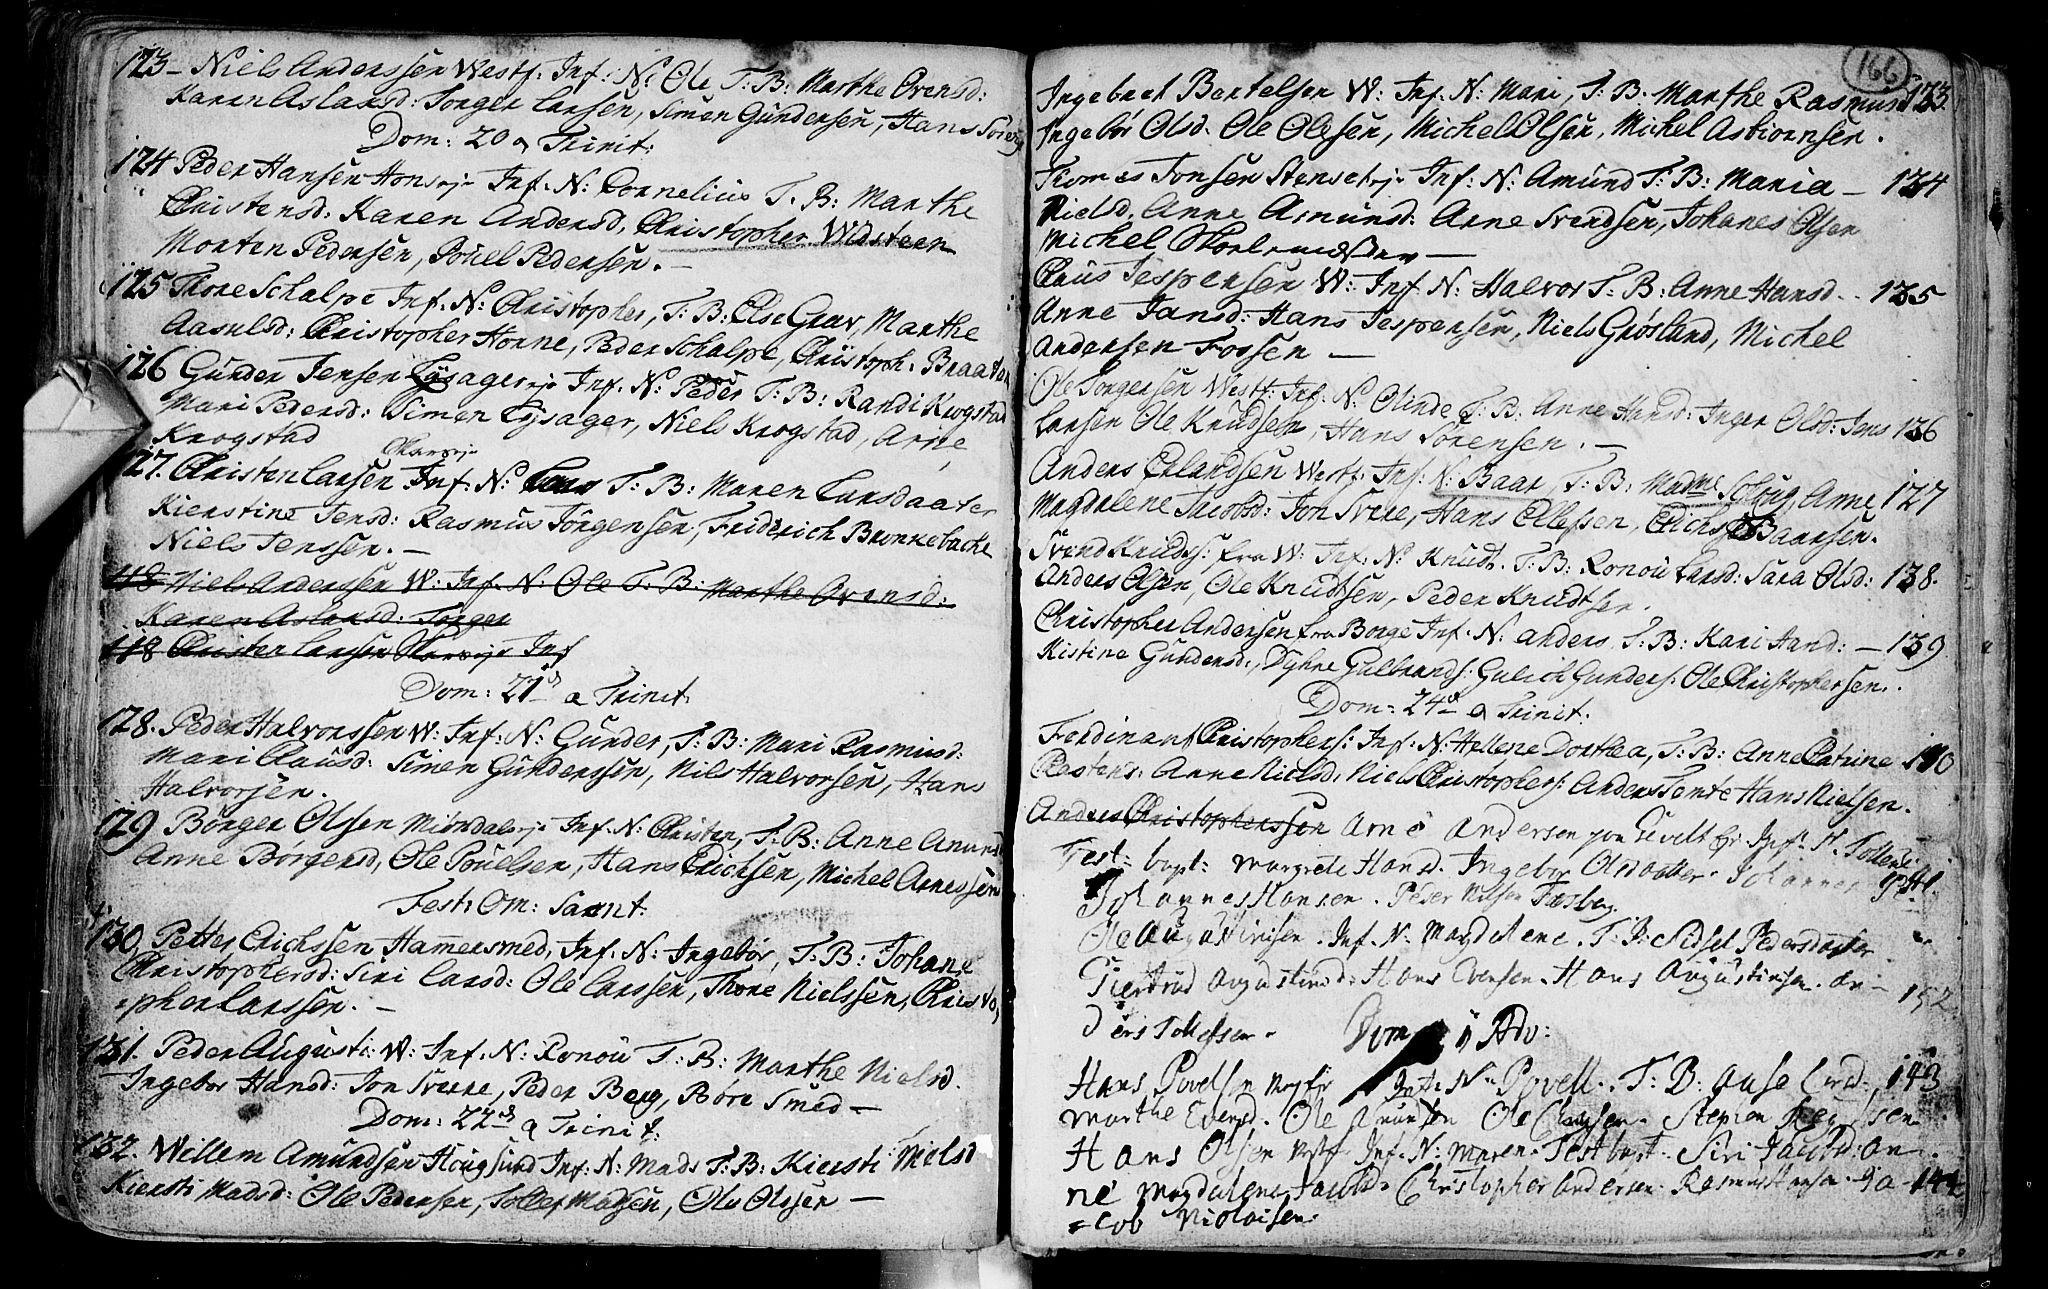 123 – Niels Anderssen Westf: Inf: N: Ole T: B: Marthe Ovensd:
Karen Aslaksd: Torger Larsen, Simen Gundersen, Hans Sörens
Dom: 20 a Trinit:
124 Peder Hansen Honsejr Inf: N: Cornelius T. B: Marthe
Christensd: Karen Andersd, Christopher Widsteen
Morten Pedersen, Pouel Pedersen. –
125 Thore Schalpe Inf: N: Christopher, T: B: Else Grav, Marthe
Aasulsd: Christopher Horne, Peder Schalpe, Christoph: Braaten
126 Gunder Jensen Lysager Inf: N: Peder T: B: Randi Krogstad
Mari Pedersd: Simen Lysager, Niels Krogstad, Arne
Krogstad
127. Christen Larsen Inf: N: Lars T: B: Maren Larsdaater
Kierstine Jensd: Rasmus Jörgensen, Friderich Bronnebache
Niels Jenssen. –
118 Niels Anderssen W: Inf: N: Ole T: B: Marthe Ovensd:
Karen Aslaksd: Torger
118 Christen Larsen Inf
Dom: 21 a Trinit:
128. Peder Halvorssen W: Inf: N: Gunder, T: B: Mari Rasmusd:
Mari Clausd: Simen Gunderssen, Nils Halvorsen, Hans
Halvorsen.
129 Börger Olsen Miöndal Inf: N: Christen, T: B: Anne Amunds
Anne Börgersd, Ole Pouelsen, Hans Erichsen, Michel Arnessen
Fest: Om: Sanct:
130. Petter Erichssen Hammersmed, Inf: N: Ingebor, T: B: Johane
Christophersd: Siri Larsd: Ole Larssen, Thore Nielssen, Christo,
=pher Larssen. –
131. Peder Augusti: W: Inf: N: Ronou T: B: Marthe Nielsd.
Ingebor Hansd: Jon Sverre, Peder Berg, Böre Smed –
Dom: 22 a Trinit:
132. Willem Amundsen Hougsund Inf: N: Mads T: B: Kiersti Nielsd
Kiersti Madsd: Ole Pedersen, Tollef Madsen, Ole Olssen –
166
Ingebret Bertelsen W: Inf: N: Mari, T: B: Marthe Rasmusd 133.
Ingebör Olsd. Ole Olesen, Michel Olsen, Michel Asbiornsen.
Thomes Jonsen Inf: N: Amund T: B: Maria – 134
Nielsd. Anne Amunsd: Arne Svendsen, Johanes Olsen
Michel
Claus Jespersen W: Inf: N: Halvor T: B: Anne Hansd. . 135
Anne Jansd: Hans Jespersen, Niels Grösland, Michel
Andersen Fossen –
Ole Torgersen Westf: Inf: N: Olinde T: B: Anne Hansd: Inger Olsd: Jens 136
Larsen Ole Knudsen, Hans Sörensen. –
Anders Erlandsen Westf: Inf: N: Baar, T: B: Madme Solbug, Anne 127
Magdalene Jacobsd: Jon Svere, Hans Ellefsen, Erichs Baarsen.
Svend Knuds: fra W: Inf: N: Knud. T: B: Ronou Larsd: Sara Olsd: 138.
Anders Olsen, Ole Knudtsen, Peder Knudtsen.
Christopher Andersen fra Borge Inf: N: anders, T: B: Kari Hansd: – 139
Kistine Gundersd., Dyhre Gulbrands: Gulich Gunders: Ole Christophersen.
Dom: 24 a Trinit.
Ferdinant Christophers: Inf: N: Hellene Dorthea, T: B: Anne Catrine 140
Anne Nielsd: Niels Christophers: Anders Tonte Hans Nielsen.
Andres Christopherssen Arne Andersen paa Inf: N.
Test: bapt: Margrete Hansd. Ingebor Olsdaatter. Johannes 141.
Johannes Hansen. Peder Nilsen
Ole Augustinisen. Inf. N: Magdelene. T: B: Sidsel Pedersdaatter
Giertrud Augustinsd: Hans Evensen. Hans Augustinsen. An – 152
ders Tollefsen.
Dom Adv:
Hans Povelsen Inf: N: Povell. T: B: 143
Marthe Evensd. Ole Ole Stephen
Hans Olsen Inf: N: Maren. Test bapt: Siri Jacobsd: An
ne Magdalene Jacobsd. Christopher Andersen. Rasmus Hansen. Ja – 144
=cob Nicolaisen.